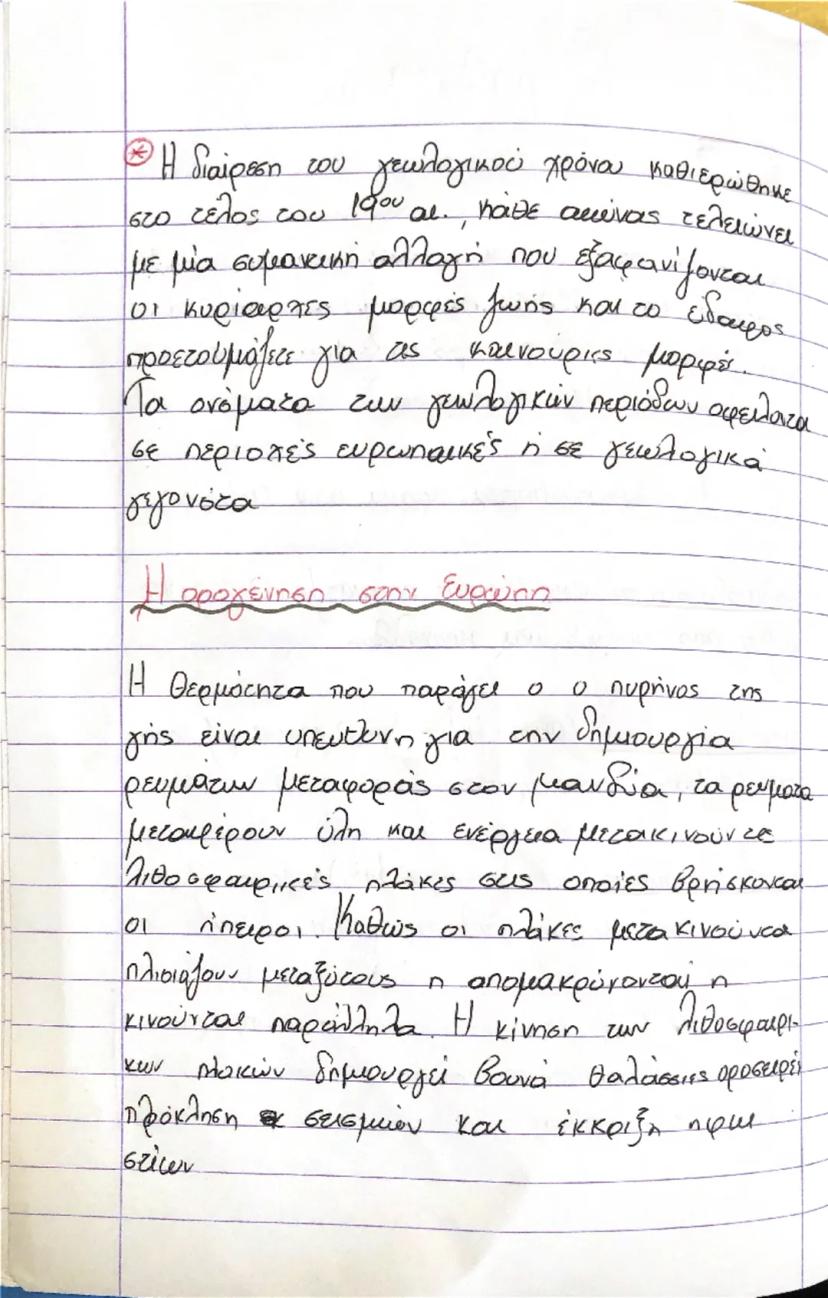 * Η διαίρεση του γεωλογικού χρόνου καθιερώθηκε
στο τέλος του 19ου αι., κάθε αιώνας τελειώνει
με μία συμαντική αλλαγή που εξαφανίζονται
οι κυρίαρχες μορφές ζωής και το έδαφος
προετοιμάζετε για τις καινούριες μορφές.
Τα ονόματα των γεωλογικών περιόδων οφείλοντα
σε περιοχές ευρωπαικές ή σε γεωλογικά
γεγονότα
Η ορογένηση στην Ευρώπη
Η θερμότητα που παράγει ο ο πυρήνος της
γής είναι υπευθυνη για την δημιουργία
ρευμάτων μεταφοράς στον μανδύα, τα ρευματα
μεταφέρουν ύλη και ενέργεια μετακινούντε
λιθοσφαιρικές πλάκες στις οποίες βρήσκονται
οι ήπειροι. Καθώς οι πλάκες μετακινούντα
πλισιάζουν μεταξύτους η απομακρύνονται η
κινούνται παράλληλα. Η κίνηση των λιθοσφαιρι-
κων πλακών δημιουργεί βουνά θαλάσσιες οροσειρέ
πρόκληση σεισμών και έκκριξη ηφαι
στίων